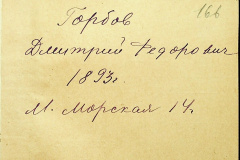 166
Горбов
Дмитрий Федорович
1893г.
М. Морская 14.